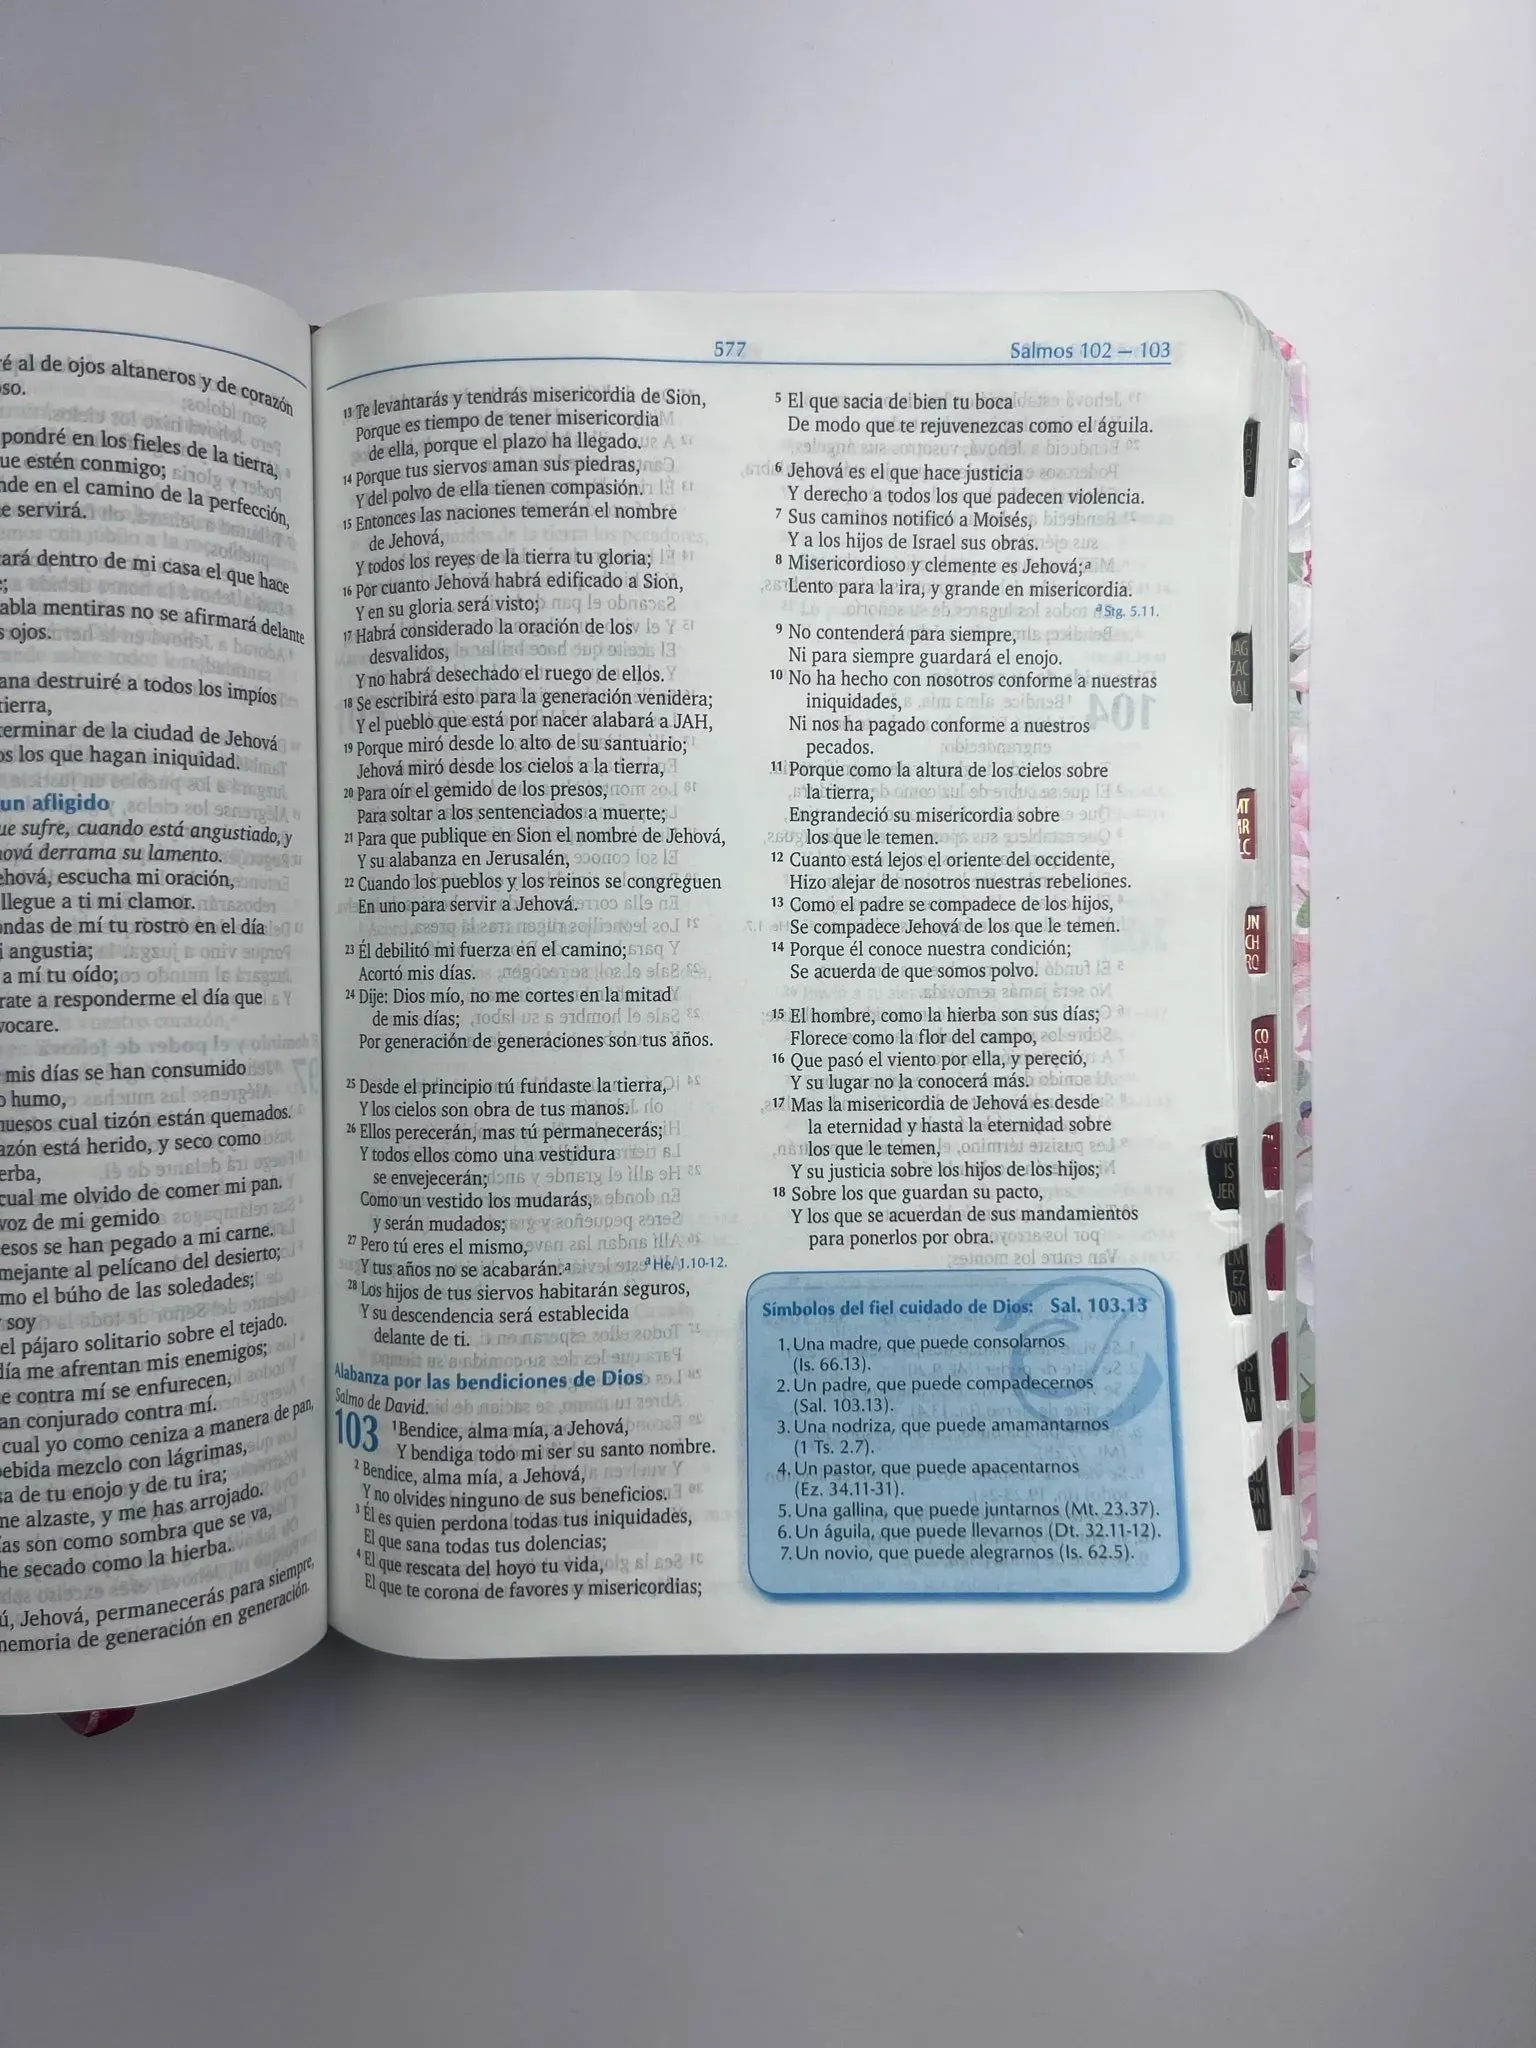 ré al de ojos altaneros y de corazón
oso.
pondré en los fieles de la tierra,
ue estén conmigo;
nde en el camino de la perfección,
e servirá.
ará dentro de mi casa el que hace
abla mentiras no se afirmará delante
s ojos.
ana destruiré a todos los impíos
tierra,
terminar de la ciudad de Jehová
os los que hagan iniquidad.
un afligido
ue sufre, cuando está angustiado, y
hová derrama su lamento.
ehová, escucha mi oración,
llegue a ti mi clamor.
ondas de mí tu rostro en el día
i angustia;
a mí tu oído;
rate a responderme el día que
vocare.
mis días se han consumido
o humo,
huesos cual tizón están quemados.
azón está herido, y seco como
erba,
cual me olvido de comer mi pan.
voz de mi gemido
esos se han pegado a mi carne.
mejante al pelícano del desierto;
mo el búho de las soledades;
soy
el pájaro solitario sobre el tejado.
día me afrentan mis enemigos;
e contra mí se enfurecen,
an conjurado contra mí.
cual yo como ceniza a manera de pan,
ebida mezclo con lágrimas,
sa de tu enojo y de tu ira;
me alzaste, y me has arrojado.
ías son como sombra que se va,
he secado como la hierba.
ú, Jehová, permanecerás para siempre,
memoria de generación en generación.
577
Salmos 102 — 103
13 Te levantarás y tendrás misericordia de Sion,
Porque es tiempo de tener misericordia
de ella, porque el plazo ha llegado.
14 Porque tus siervos aman sus piedras,
Y del polvo de ella tienen compasión.
15 Entonces las naciones temerán el nombre
de Jehová,
Y todos los reyes de la tierra tu gloria;
16 Por cuanto Jehová habrá edificado a Sion,
Y en su gloria será visto;
17 Habrá considerado la oración de los
desvalidos,
Y no habrá desechado el ruego de ellos.
18 Se escribirá esto para la generación venidera;
Y el pueblo que está por nacer alabará a JAH,
19 Porque miró desde lo alto de su santuario;
Jehová miró desde los cielos a la tierra,
20 Para oír el gemido de los presos,
Para soltar a los sentenciados a muerte;
21 Para que publique en Sion el nombre de Jehová,
Y su alabanza en Jerusalén,
22 Cuando los pueblos y los reinos se congreguen
En uno para servir a Jehová.
23 Él debilitó mi fuerza en el camino;
Acortó mis días.
24 Dije: Dios mío, no me cortes en la mitad
de mis días;
Por generación de generaciones son tus años.
25 Desde el principio tú fundaste la tierra,
Y los cielos son obra de tus manos.
26 Ellos perecerán, mas tú permanecerás;
Y todos ellos como una vestidura
se envejecerán;
Como un vestido los mudarás,
y serán mudados;
27 Pero tú eres el mismo,
Y tus años no se acabarán.a
a He. 1.10-12.
28 Los hijos de tus siervos habitarán seguros,
Y su descendencia será establecida
delante de ti.
Alabanza por las bendiciones de Dios
Salmo de David.
103 1 Bendice, alma mía, a Jehová,
Y bendiga todo mi ser su santo nombre.
2 Bendice, alma mía, a Jehová,
Y no olvides ninguno de sus beneficios.
3 Él es quien perdona todas tus iniquidades,
El que sana todas tus dolencias;
4 El que rescata del hoyo tu vida,
El que te corona de favores y misericordias;
5 El que sacia de bien tu boca
De modo que te rejuvenezcas como el águila.
6 Jehová es el que hace justicia
Y derecho a todos los que padecen violencia.
7 Sus caminos notificó a Moisés,
Y a los hijos de Israel sus obras.
8 Misericordioso y clemente es Jehová;a
Lento para la ira, y grande en misericordia.
a Stg. 5.11.
9 No contenderá para siempre,
Ni para siempre guardará el enojo.
10 No ha hecho con nosotros conforme a nuestras
iniquidades,
Ni nos ha pagado conforme a nuestros
pecados.
11 Porque como la altura de los cielos sobre
la tierra,
Engrandeció su misericordia sobre
los que le temen.
12 Cuanto está lejos el oriente del occidente,
Hizo alejar de nosotros nuestras rebeliones.
13 Como el padre se compadece de los hijos,
Se compadece Jehová de los que le temen.
14 Porque él conoce nuestra condición;
Se acuerda de que somos polvo.
15 El hombre, como la hierba son sus días;
Florece como la flor del campo,
16 Que pasó el viento por ella, y pereció,
Y su lugar no la conocerá más.
17 Mas la misericordia de Jehová es desde
la eternidad y hasta la eternidad sobre
los que le temen,
Y su justicia sobre los hijos de los hijos;
18 Sobre los que guardan su pacto,
Y los que se acuerdan de sus mandamientos
para ponerlos por obra.
Símbolos del fiel cuidado de Dios: Sal. 103.13
1. Una madre, que puede consolarnos
(Is. 66.13).
2. Un padre, que puede compadecernos
(Sal. 103.13).
3. Una nodriza, que puede amamantarnos
(1 Ts. 2.7).
4. Un pastor, que puede apacentarnos
(Ez. 34.11-31).
5. Una gallina, que puede juntarnos (Mt. 23.37).
6. Un águila, que puede llevarnos (Dt. 32.11-12).
7. Un novio, que puede alegrarnos (Is. 62.5).
ZAC
JN
CH
RO
CO
GA
CNT
IS
JER
EZ